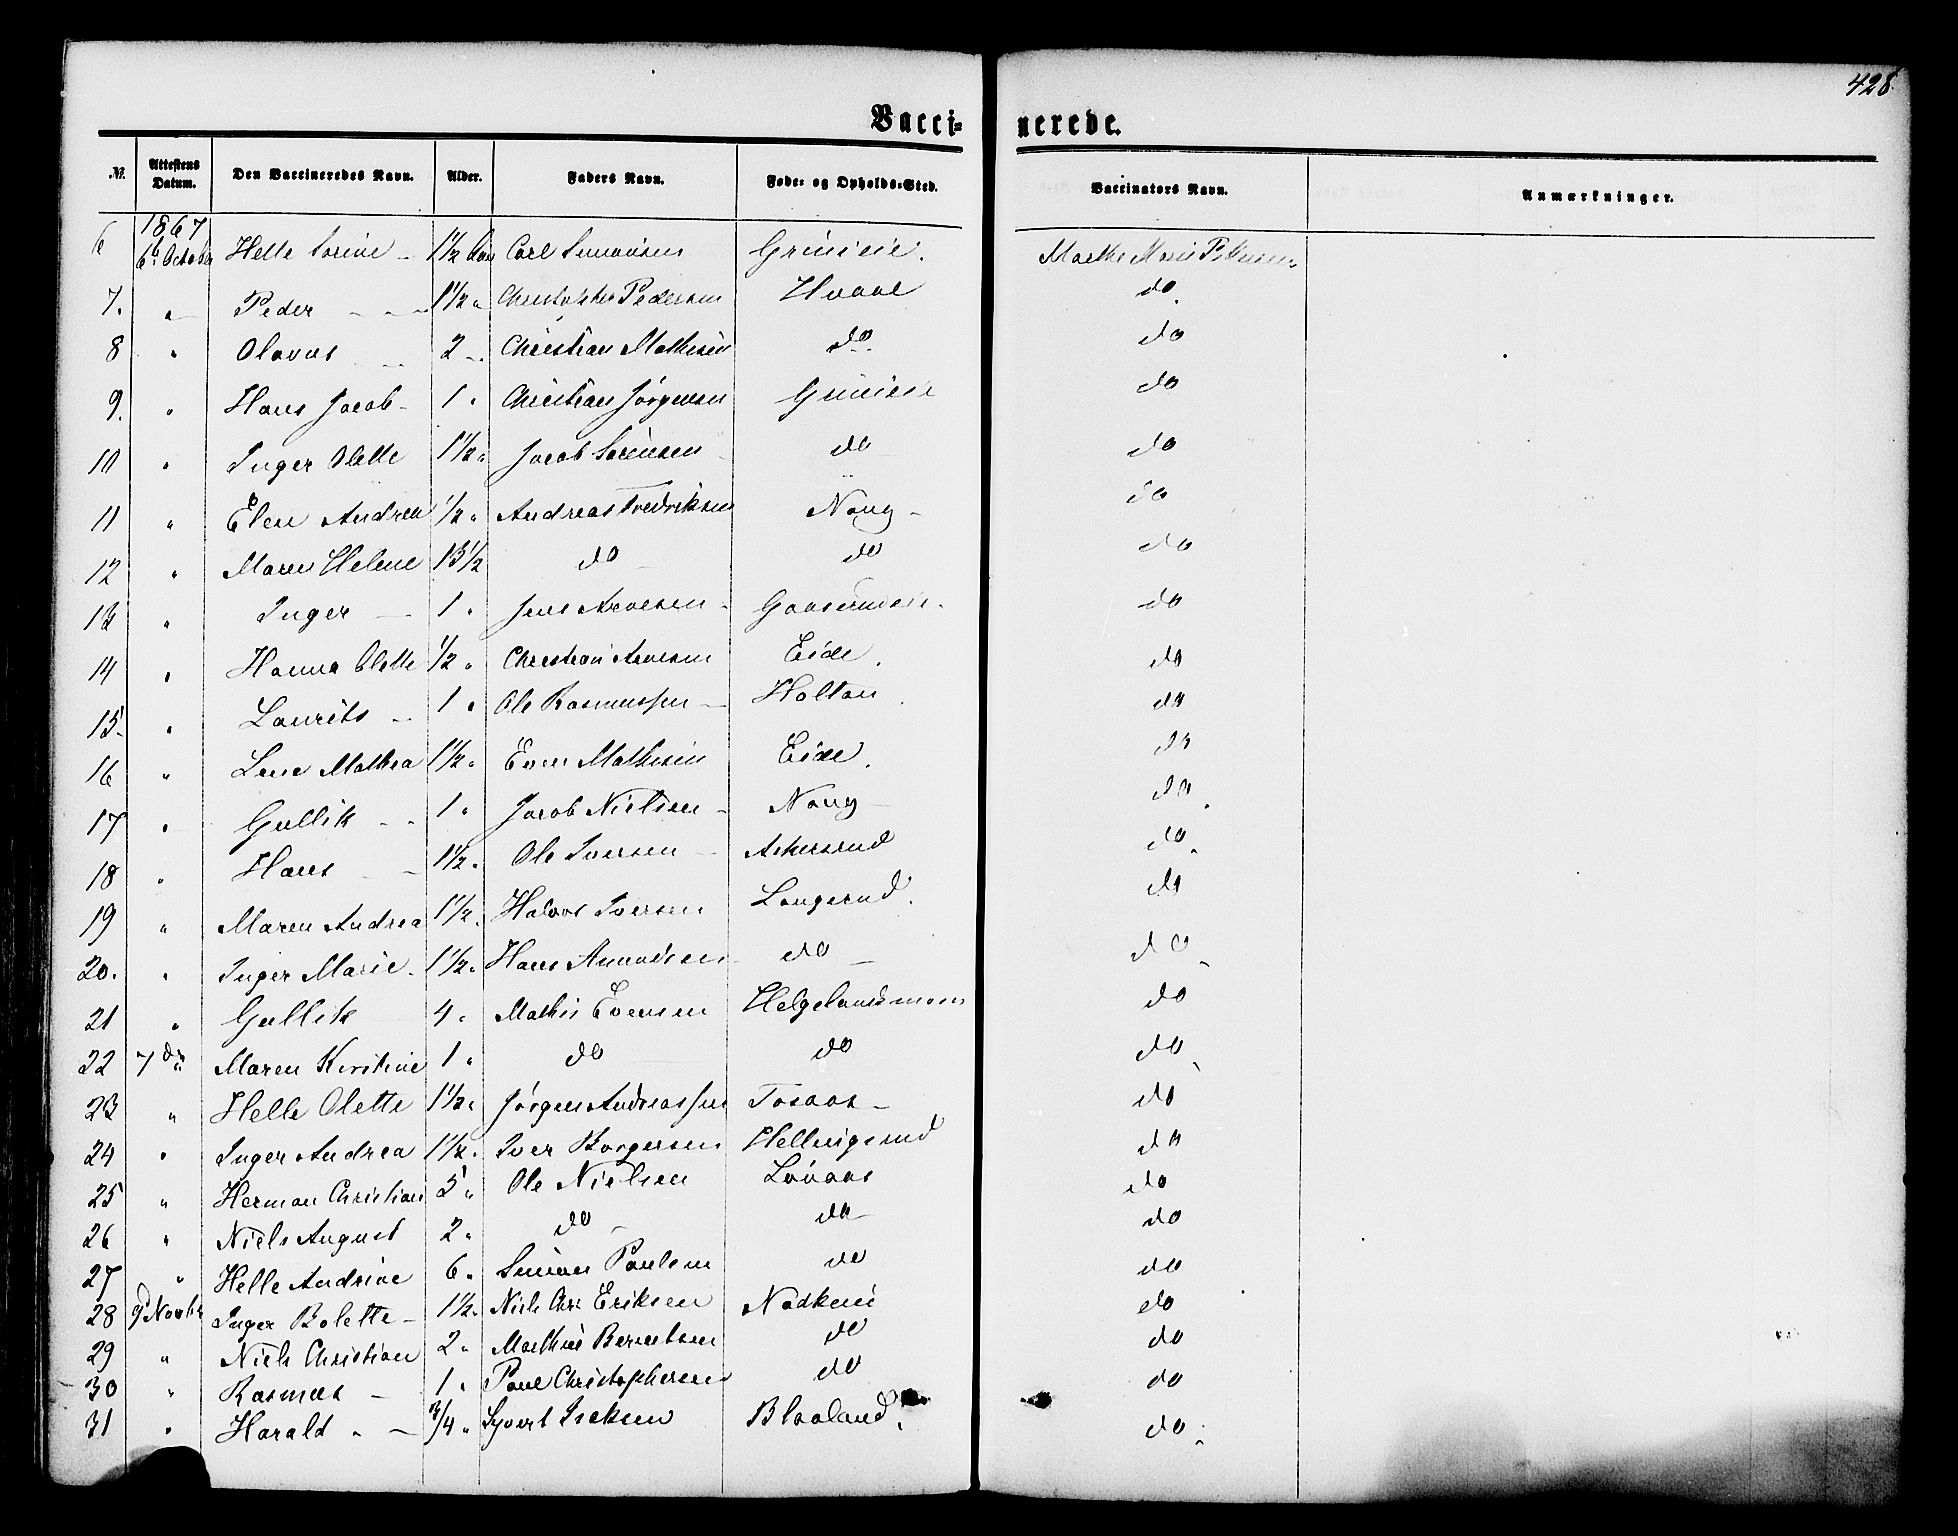 428
Vacci-nerede.
№ Attestens Datum. Den Vaccineredes Navn. Alder. Faders Navn. Føde- og Opholds-Sted. Vaccinators Navn. Anmærkninger.
1867
6 6te October Helle Sorine 1½ Carl Simonsen Grinieie. Marthe Marie Petersen
7. " Peder 1½ " Christopher Pedersen Hvaal do
8 " Olavus 2 " Christian Mathisen do do
9. " Hans Jacob 1 " Christian Jörgensen Grinieie do
10 " Inger Olette 1½ " Jacob Sörensen do do
11 " Elen Andrea ½ " Andreas Fredriksen Naug do
12 " Maren Helene 13½ do do do
13 " Inger 1 " Jens Arvesen do
14 " Hanna Olette ½ " Christian Arvesen Eide do
15. " Laurits 1 " Ole Rasmussen Holtan do
16 " Lene Mathea 1½ " Even Mathisen Eide. do
17 " Gullik 1 " Jacob Nielsen Naug do
18 " Hans 1½ " Ole Iversen Ackersrud do
19 " Maren Andrea 1½ " Halvor Iversen Langerud. do
20. " Inger Marie 1½ " Hans Amundsen do do
21 " Gullik 4 " Mathis Evensen Helgelandsmoen do
22 7de Maren Kirstine 1 " do do do
23 " Helle Olette 1½ " Jörgen Andreassen Tosaas do
24 " Inger Andrea 1½ " Iver Borgersen Hellingsrud do
25 " Herman Christian 5 " Ole Nielsen Lövaas do
26 " Niels August 2 " do do do
27 " Helle Andrine 6 " Simon Paulsen do do
28 9d Novbr Inger Bolette 1½ " Niels Chr. Eriksen do
29 " Niels Christian 2 " Mathias Berntsen do do
30 " Rasmus 1 " Paul Christophersen do do
31 " Harald " ¾ " Syvert Blaaland. do